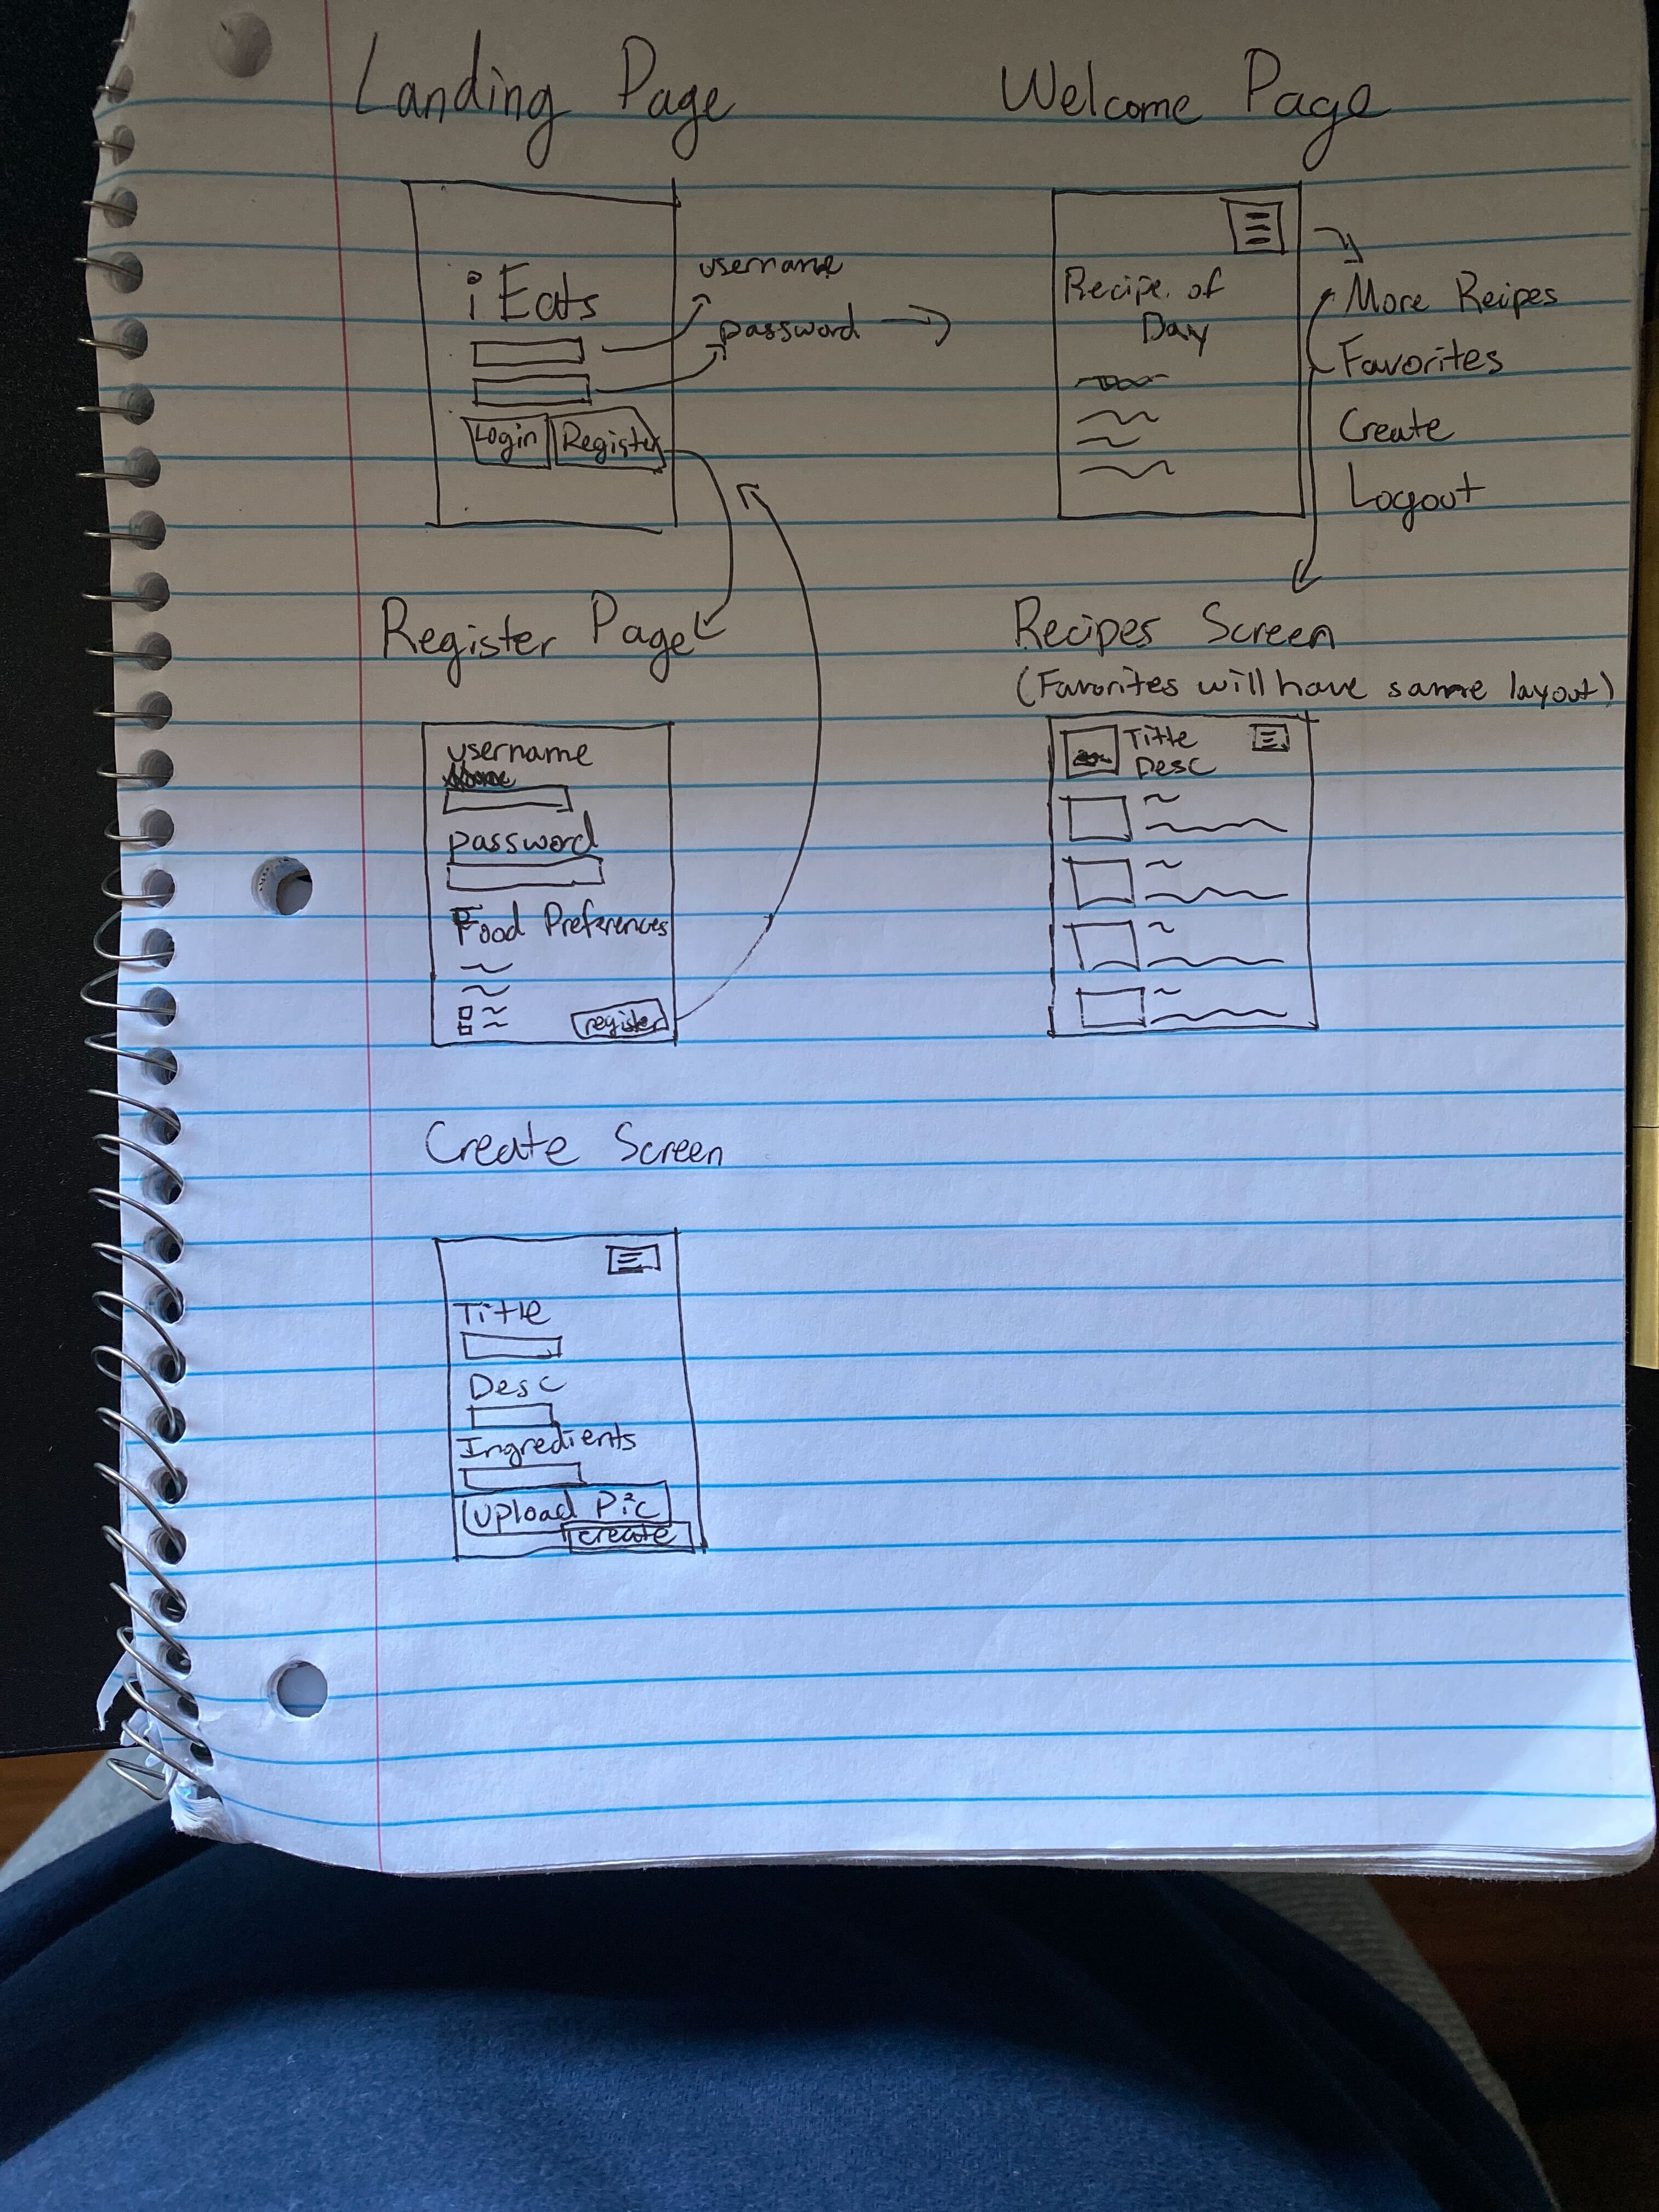 Landing Page
i Eats
username
password
Login
Register
Welcome Page
Recipe of
Day
More Reipes
Favorites
Create
Logout
Register Page
username
password
Food Preferences
register
Recipes Screen
(Favorites will have same layout)
Title
Desc
Create Screen
Title
Desc
Ingredients
Upload Pic
create